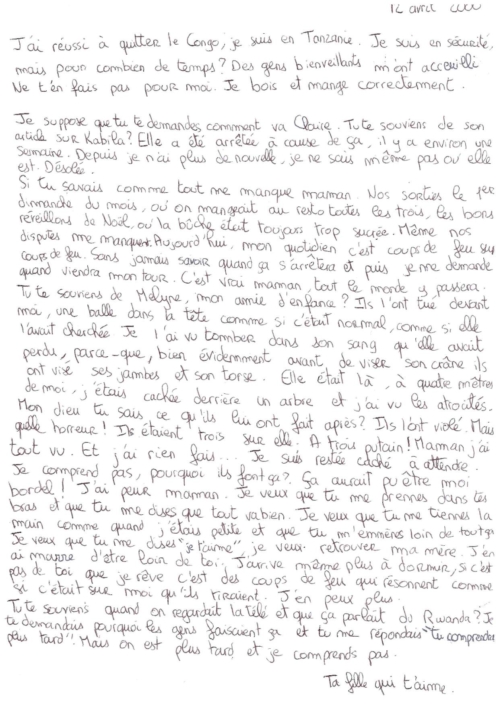 12 avril 2000
J'ai réussi à quitter le Congo, je suis en Tanzanie. Je suis en sécurité,
mais pour combien de temps? Des gens bienveillants m'ont acceuilli
Ne t'en fais pas pour moi. Je bois et mange correctement.
Je suppose que tu te demandes comment va Claire. Tu te souviens de son
article sur Kabila? Elle a été arrêtée à cause de ça, il y a environ une
semaine. Depuis je n'ai plus de nouvelle, je ne sais même pas où elle
est. Désolée.
Si tu savais comme tout me manque maman. Nos sorties le 1er
dimanche du mois, où on mangeait au resto toutes les trois, les bons
réveillons de Noël, où la bûche était toujours trop sucrée. Même nos
disputes me manquent. Aujourd'hui, mon quotidien c'est coups de feu sur
coups de feu. Sans jamais savoir quand ça s'arrêtera et puis je me demande
quand viendra mon tour. C'est vrai maman, tout le monde y passera.
Tu te souviens de Mélype, mon amie d'enfance? Ils l'ont tué devant
moi, une balle dans la tête comme si c'était normal, comme si elle
l'avait cherchée Je l'ai vu tomber dans son sang qu'elle avait
perdu, parce-que, bien évidemment avant de viser son crâne ils
ont visé ses jambes et son torse. Elle était là, à quatre mètres
de moi, j'étais cachée derrière un arbre et j'ai vu les atrocités.
Mon dieu tu sais ce qu'ils lui ont fait après? Ils l'ont violé. Mais
quelle horreur! Ils étaient trois sur elle. A trois putain! Maman j'ai
tout vu. Et j'ai rien fais... Je suis restée caché à attendre.
Je comprend pas, pourquoi ils font ça? Ça aurait pu être moi
bordel! J'ai peur maman. Je veux que tu me prennes dans tes
bras et que tu me dises que tout va bien. Je veux que tu me tiennes la
main comme quand j'étais petite et que tu m'emmènes loin de tout ça
Je veux que tu me dises "je t'aime", je veux retrouver ma mère. J'en
ai marre d'être loin de toi. J'arrive même plus à dormir, si c'est
pas de toi que je rêve c'est des coups de feu qui résonnent comme
si c'était sur moi qu'ils tiraient. J'en peux plus.
Tu te souviens quand on regardait la télé et que ça parlait du Rwanda? Je
te demandais pourquoi les gens faisaient ça et tu me répondais "tu comprendras
plus tard". Mais on est plus tard et je comprends pas.
Ta fille qui t'aime.